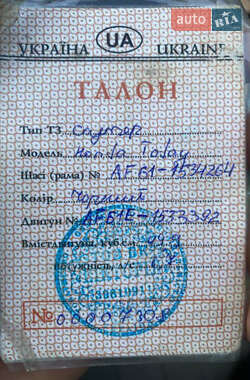 auto RIA
УКРАЇНА UA UKRAINE
ТАЛОН
Тип ТЗ Скутер
Модель Honda Today
Шасі (рама) № AF61-1534264
Колір Чорний
Двигун № AF61E-1533392
Вміст двигуна, куб.см. 49,9
потужність, л/с
№ 0000730